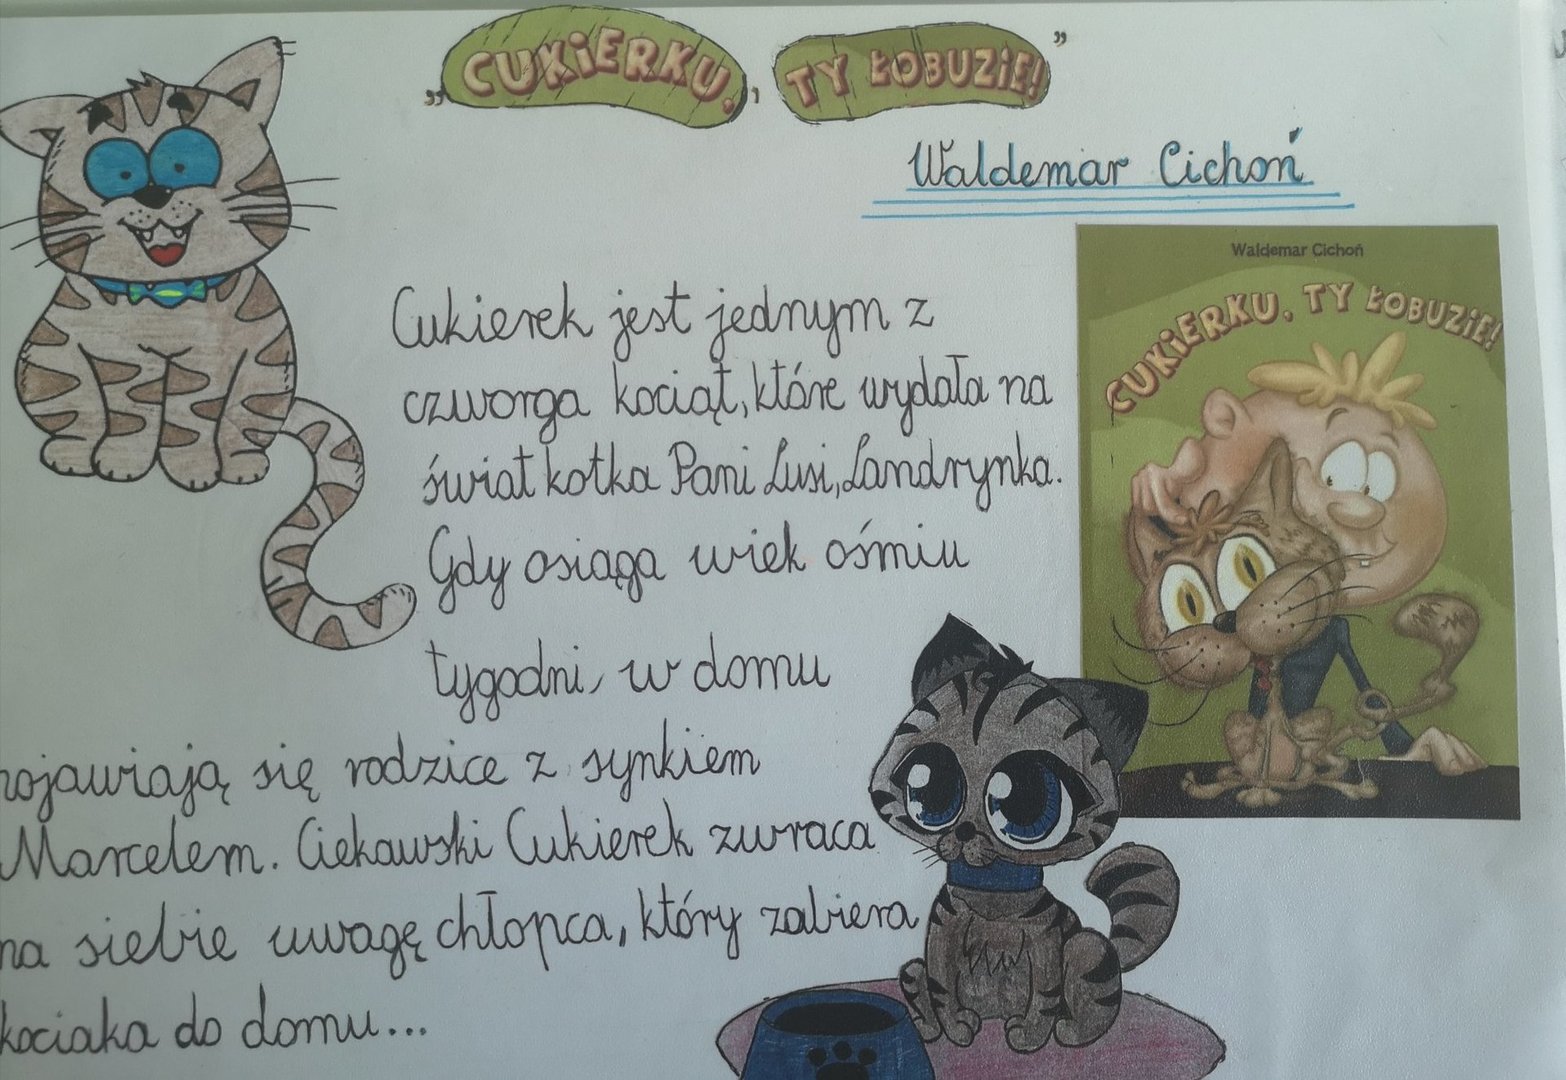 „CUKIERKU, TY ŁOBUZIE!”
Waldemar Cichoń
Waldemar Cichoń
CUKIERKU, TY ŁOBUZIE!
Cukierek jest jednym z
czworga kociąt, które wydała na
świat kotka Pani Lusi, Landrynka.
Gdy osiąga wiek ośmiu
tygodni, w domu
pojawiają się rodzice z synkiem
Marcelem. Ciekawski Cukierek zwraca
na siebie uwagę chłopca, który zabiera
kociaka do domu...